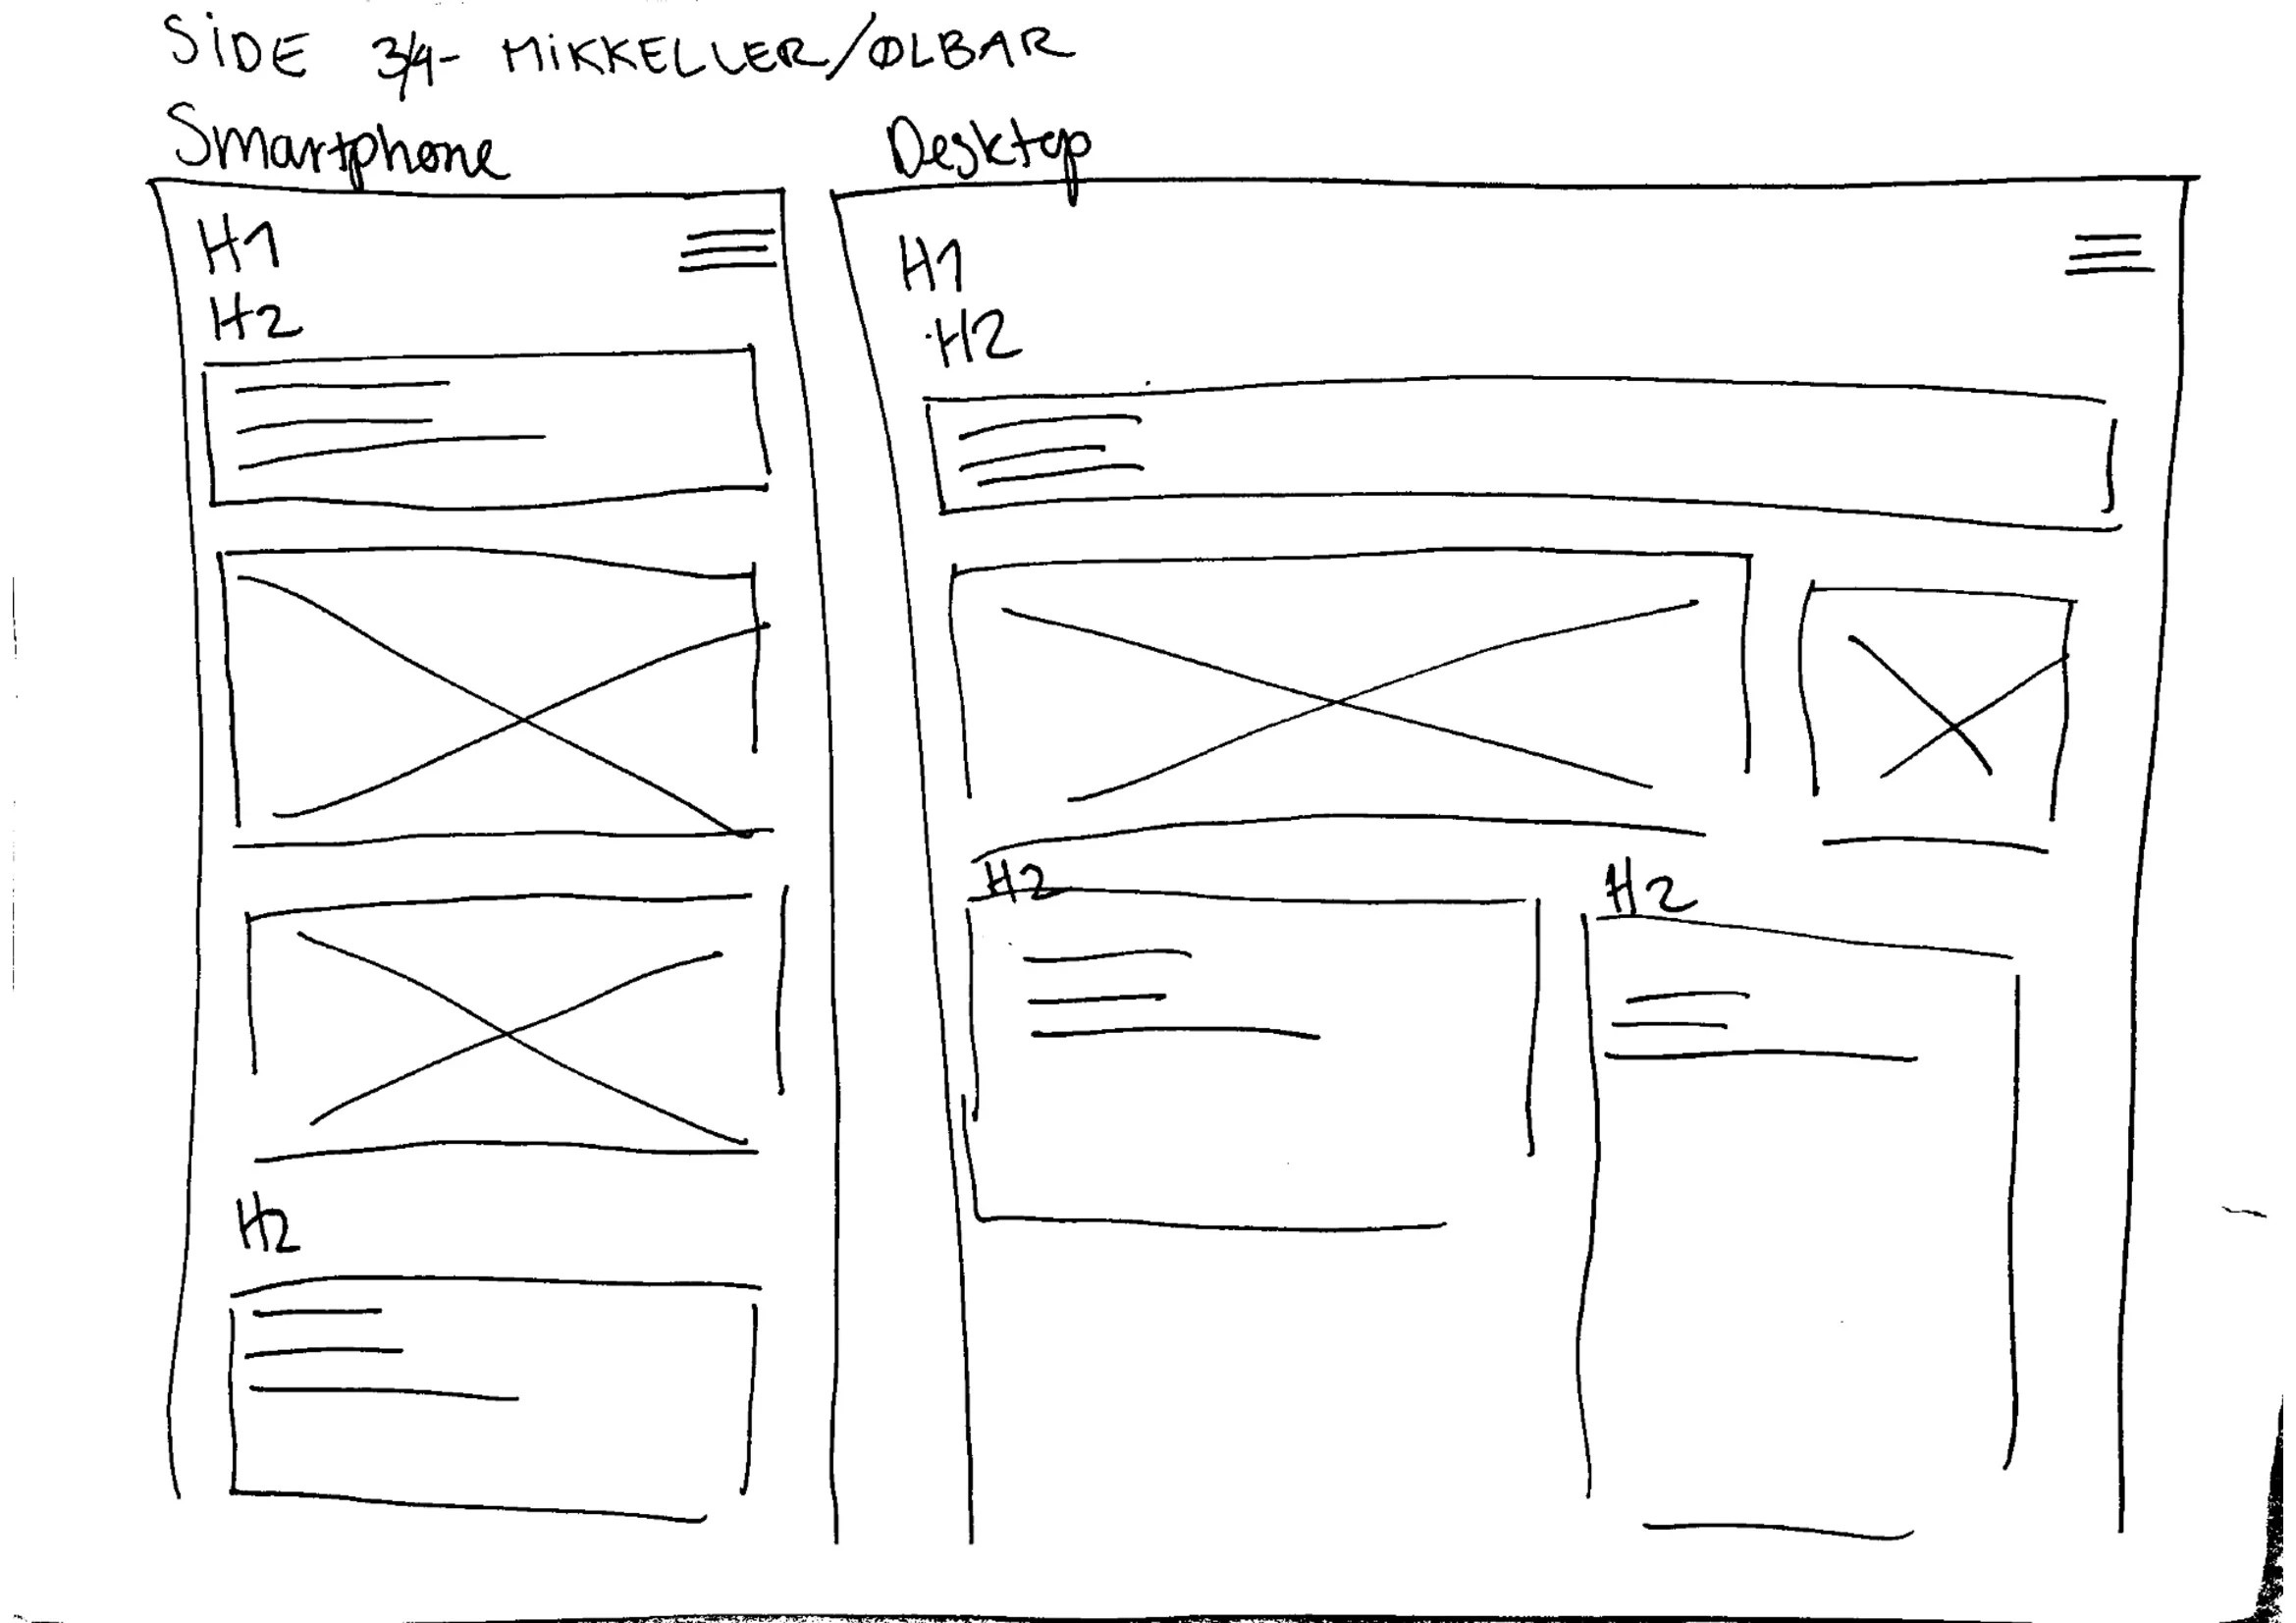 SiDE 3/4- MiKKELLER/ØLBAR
Smartphone
H1
H2
H2
Desktop
H1
H2
H2
H2